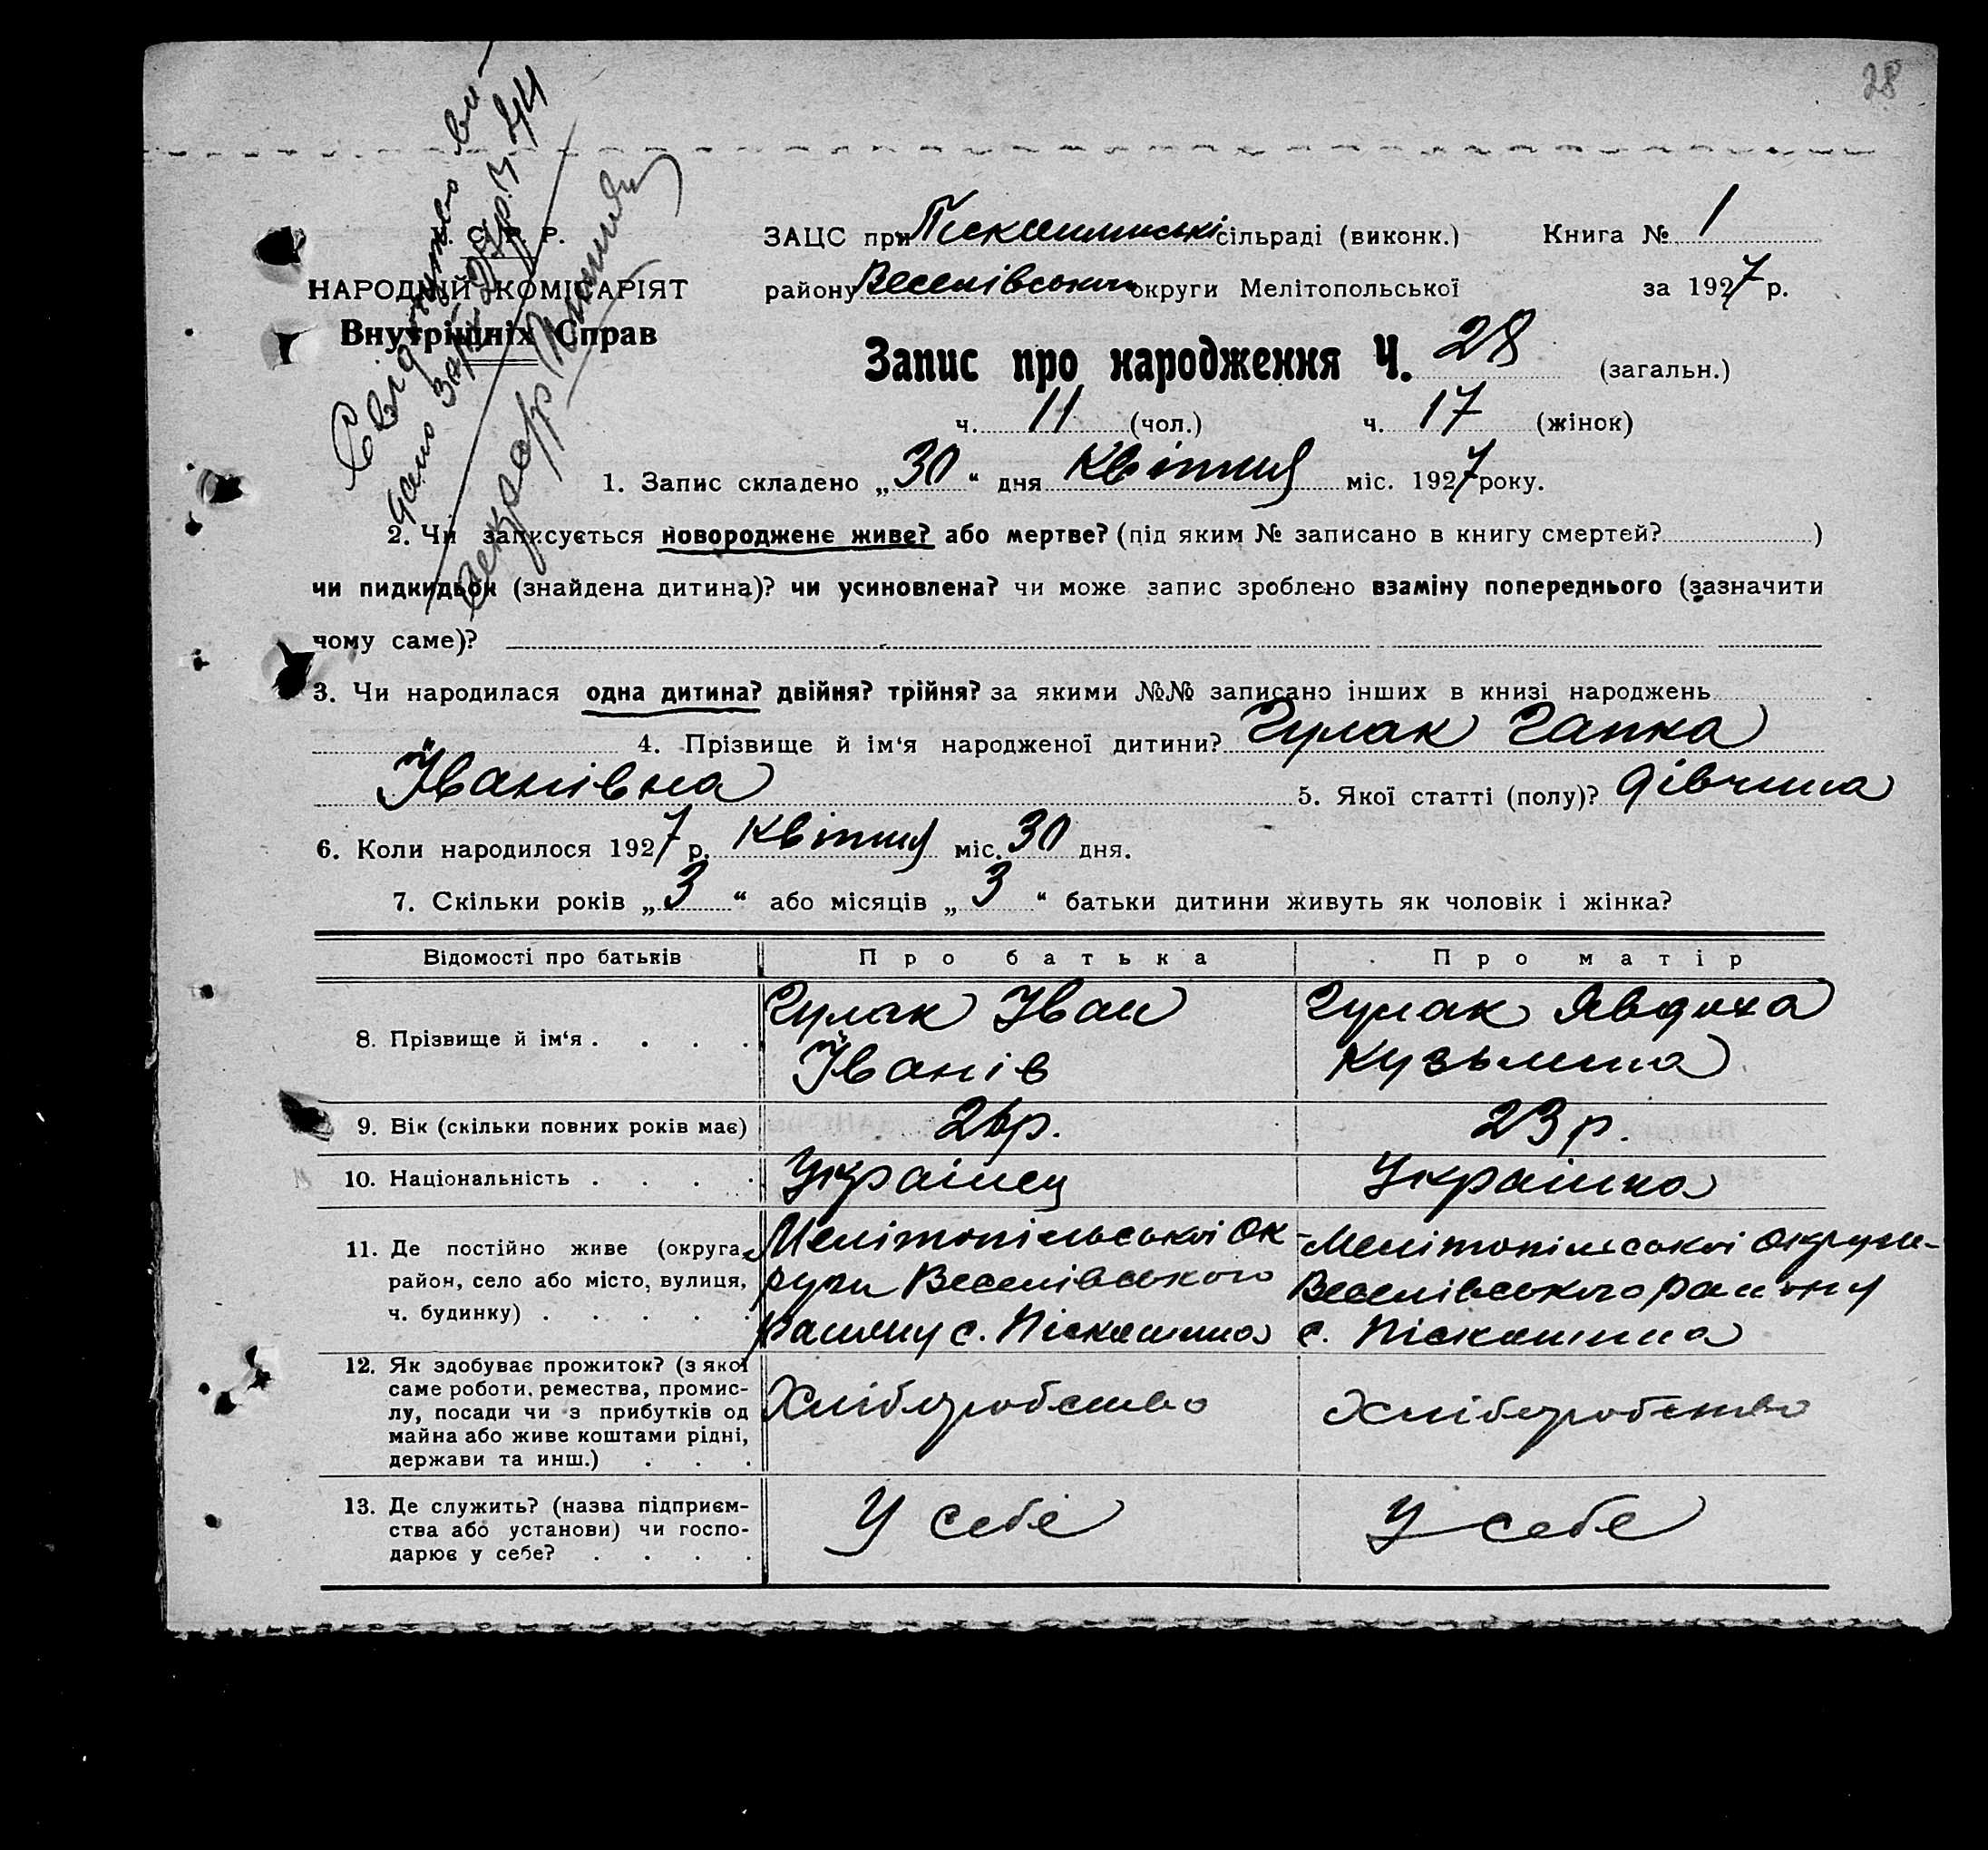 28
У. С. Р. Р.
НАРОДНІЙ КОМІСАРІЯТ
Внутрішніх Справ
Свідоцтво ви-
дано
ЗАЦС при Пискошинські сільраді (виконк.) Книга № 1
району Веселівського округи Мелітопольської за 1927 р.
Запис про народження Ч. 28 (загальн.)
ч. 11 (чол.) ч. 17 (жінок)
1. Запис складено „30“ дня Квітня міс. 1927 року.
2. Чи записується новороджене живе? або мертве? (під яким № записано в книгу смертей? )
чи пидкидьок (знайдена дитина)? чи усиновлена? чи може запис зроблено взаміну попереднього (зазначити
чому саме)?
3. Чи народилася одна дитина? двійня? трійня? за якими №№ записано інших в книзі народжень
4. Прізвище й ім‘я народженої дитини? Гулак Гапка
Їванівна 5. Якої статті (полу)? дівчина
6. Коли народилося 1927 р. Квітня міс. 30 дня.
7. Скільки років „3“ або місяців „3“ батьки дитини живуть як чоловік і жінка?
Відомості про батьків Про батька Про матір
8. Прізвище й ім‘я . . . . Гулак Іван Гулак Явдоха
Їванів Кузьмина
9. Вік (скільки повних років має) 26р. 23 р.
10. Національність . . . . Українец Українка
11. Де постійно живе (округа, Мелітопільської Ок Мелітопільської Округи-
район, село або місто, вулиця, руги Веселівського Веселівського району
ч. будинку) . . . . . району с. Піскошина с. Піскошина
12. Як здобуває прожиток? (з якої
саме роботи, ремества, промис-
лу, посади чи з прибутків од Хліборобство Хліборобство
майна або живе коштами рідні,
держави та инш.) . . .
13. Де служить? (назва підприєм-
ства або установи) чи госпо- У себе У себе
дарює у себе? . . . .